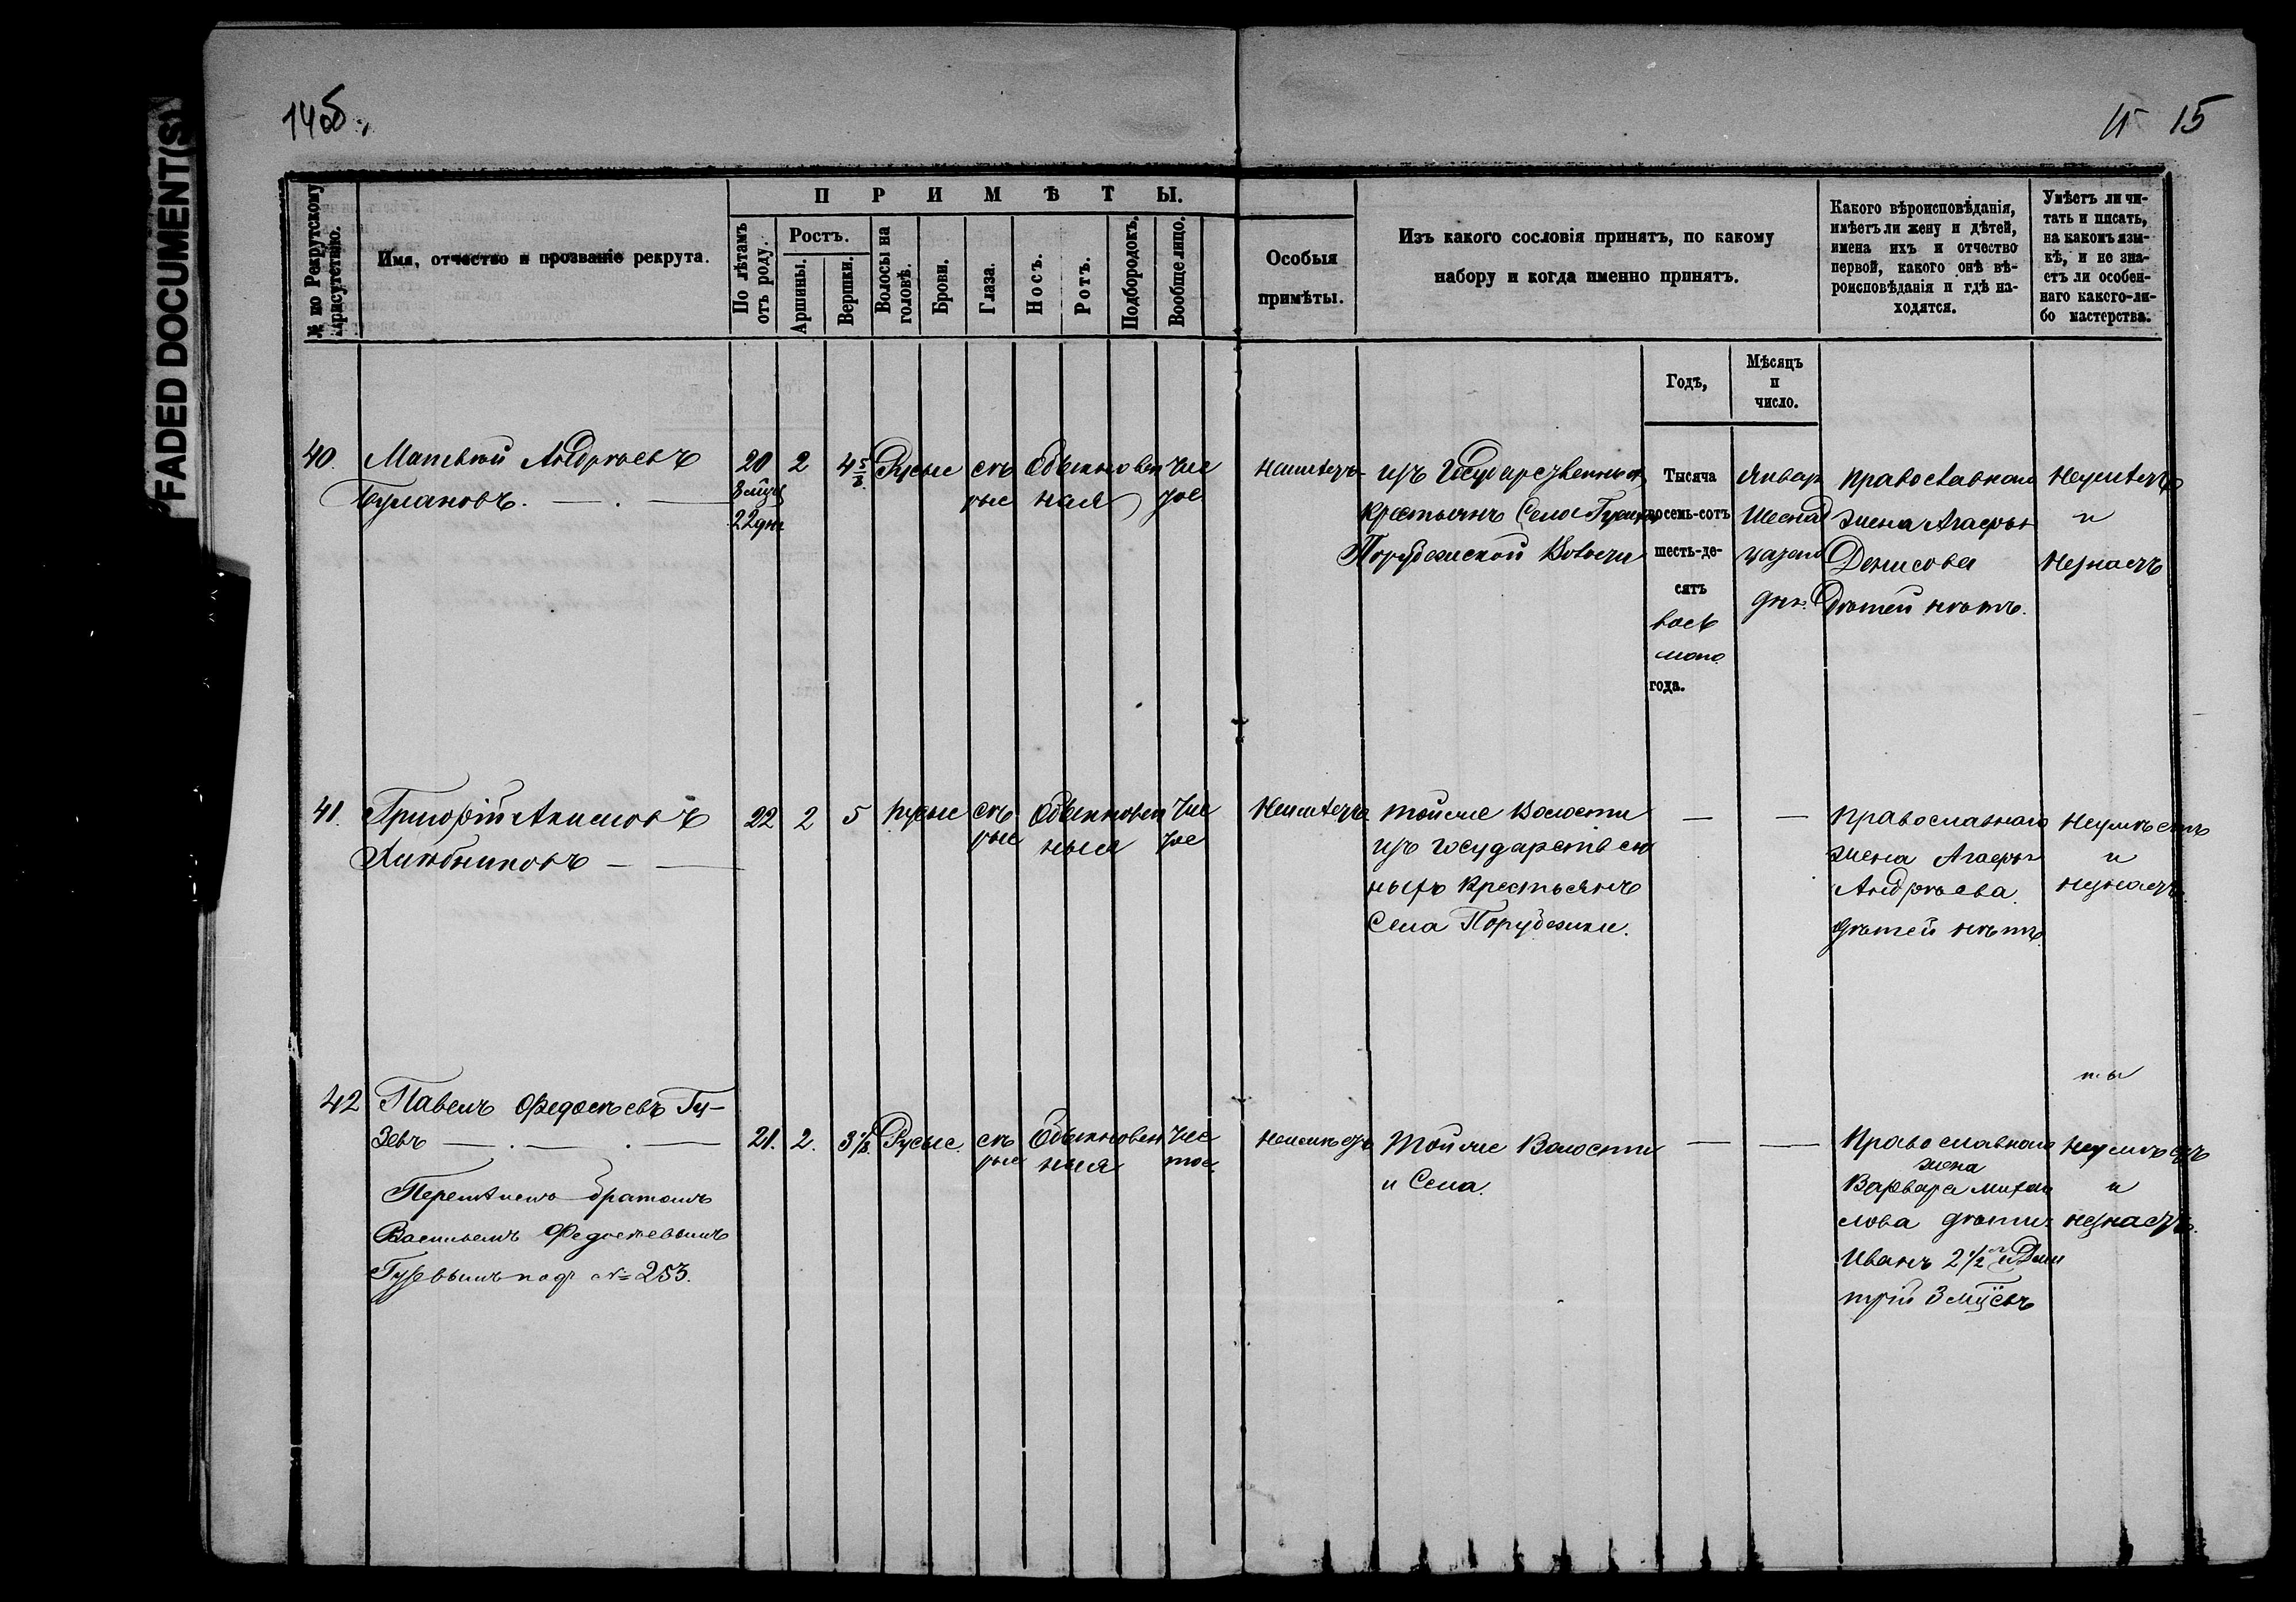 "FADED DOCUMENT(S)"
14об.
15
№ по Рекрутскому присутствию.
Имя, отчество и прозваніе рекрута.
ПРИМѢТЫ.
По лѣтамъ отъ роду.
Ростъ.
Аршины.
Вершки.
Волосы на головѣ.
Брови.
Глаза.
Носъ.
Ротъ.
Подбородокъ.
Вообще лицо.
Особыя
примѣты.
Изъ какого сословія принятъ, по какому
набору и когда именно принятъ.
Какого вѣроисповѣданія,
имѣетъ ли жену и дѣтей,
имена ихъ и отчество
первой, какого онѣ вѣ-
роисповѣданія и гдѣ на-
ходятся.
Умѣетъ ли чи-
тать и писать,
на какомъ язы-
кѣ, и не зна-
етъ ли особен-
наго какого-ли-
бо мастерства.
Годъ,
Мѣсяцъ
и
число.
40. Матвѣй Андреевъ
Булановъ.
20
3 мѣц
22 дня
2
4 5/8
Русые
сѣ
рые
Обыкновен
ная
Чис
тое
Неимѣетъ
изъ Государственныхъ
Крестьянъ Села
Порубежской Волости
Тысяча
восемь-сотъ
шесть-де-
сятъ
вось
маго
года.
Январ
Шеснад
цатаго
дня.
Православнаго
жена Агафья
Денисова
Дѣтей нѣтъ.
Неумѣетъ
и
Незнаетъ
41. Григорій Акимовъ
22
2
5
русые
сѣ
рые
Обыкновен
ныя
Чис
тое
Неимѣетъ
тойже Волости
изъ государствен
ныхъ Крестьянъ
Села Порубежки.
Православнаго
жена Агафья
Андреева.
дѣтей нѣтъ
неумѣетъ
и
незнаетъ
42 Павелъ Федосѣевъ Гу-
зевъ
21.
2.
3 1/8.
Русые.
сѣ
рые
Обыкновен
ныя
Чис
тое
неимѣетъ
Тойже Волости
и Села.
Православнаго
жена
Варвара Михай
лова дѣти
Иванъ 2 1/2 и Дми
трій 3 мѣцевъ
неумѣетъ
и
незнаетъ.
Перемѣненъ братомъ
Васильемъ Федосѣевымъ
Гузевымъ под № 253.